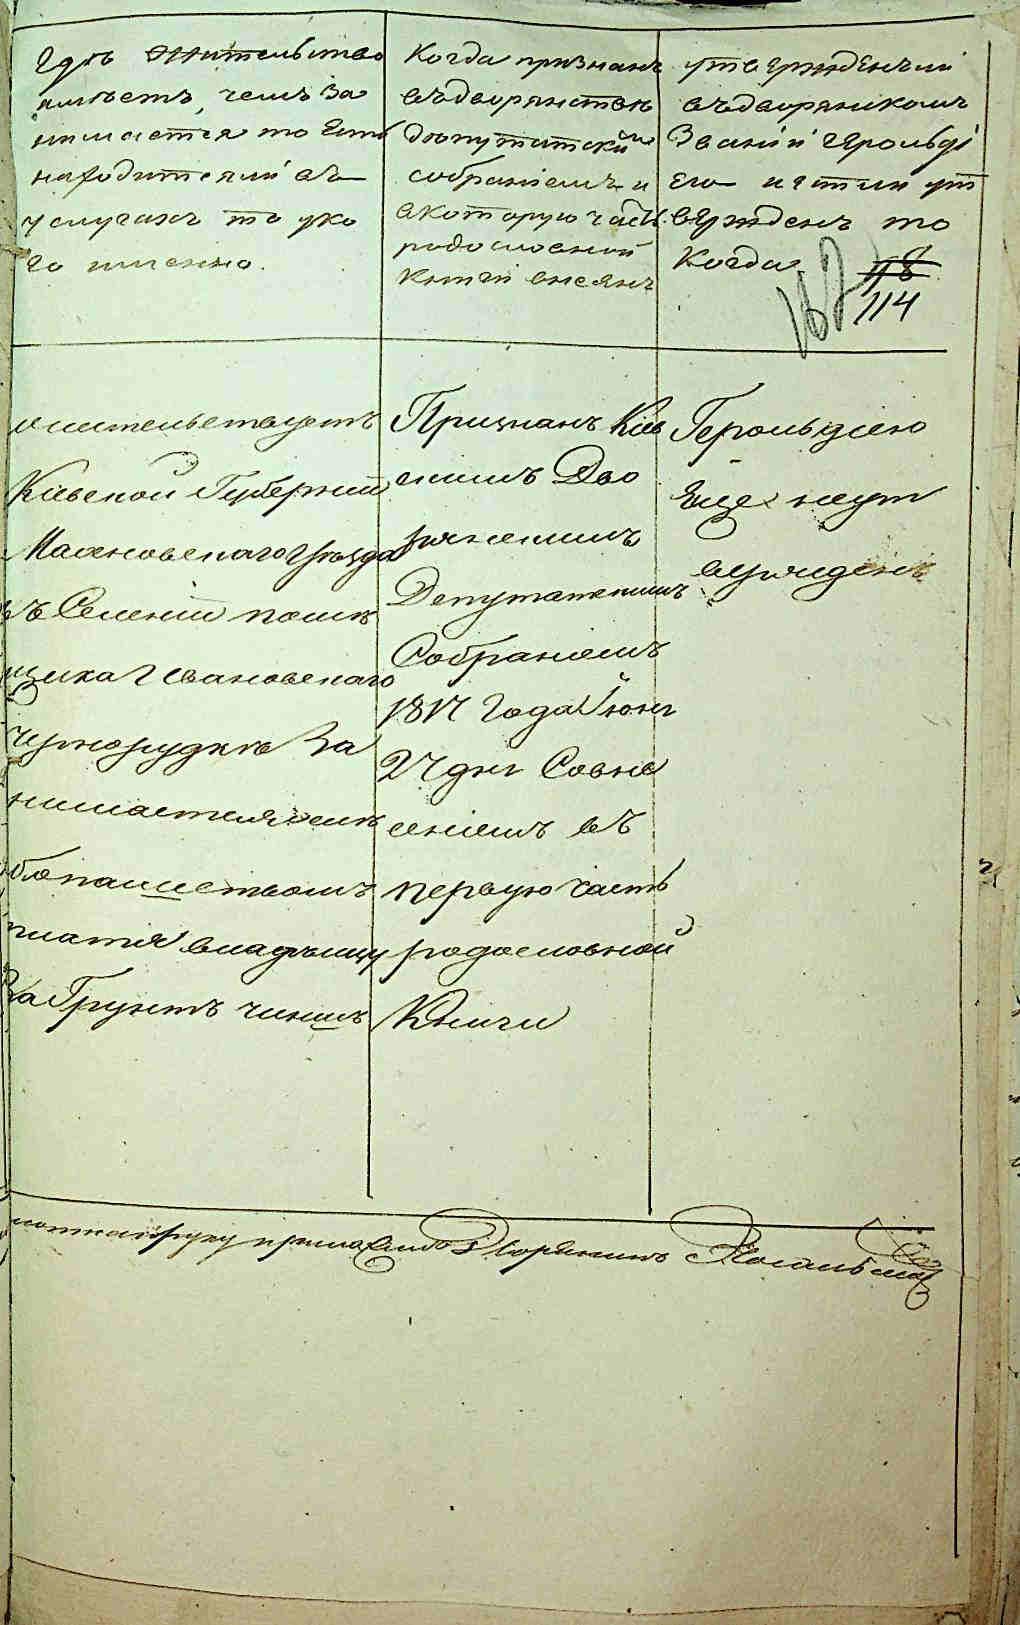 гдѣ жительство
имѣетъ, чемъ за
нимается то есть
находится ли въ
услугахъ то у ко
го именно.
Когда признанъ
въ дворянствѣ
депутатским
собраніемъ и
в которую часть
родословной
книги внесянъ
утвержденъ ли
въ дворянскомъ
званіи Герольді
ею и если ут
вержденъ то
когда
118
114
167
жительствуетъ
Кіевской Губерніи
Махновскаго уѣзда
въ Селеніи помѣ
щика Ивановскаго
Чернорудкѣ За
нимается хлѣ
бопашествомъ
платя владѣльцу
За Грунтъ чиншъ
Признанъ Кіев
скимъ Дво
рянскимъ
Депутатскимъ
Собраніемъ
1817 года Іюня
27 дня Совне
сеніемъ въ
первую часть
родословной
Книги
Герольдіею
Еще неут
вержденъ
руку приложилъ Дворянинъ